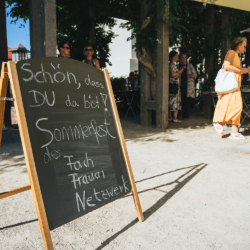 Schön, dass
DU da bist!
Sommerfest
des
Fach
Frauen
Netzwerk